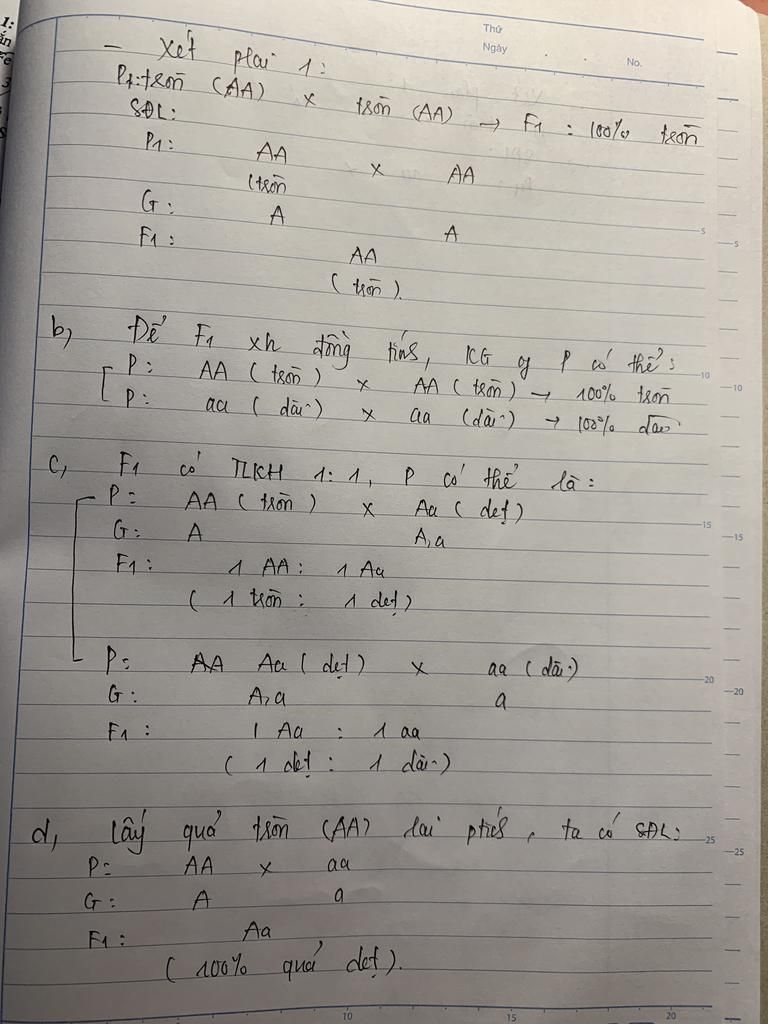 Thứ
Ngày . . No.
- Xét phai 1:
P1: tròn (AA) x tròn (AA) → F1 : 100% tròn
SĐL:
P1: AA x AA
(tròn
G: A A
F1: AA
( tròn ).
b, Để F1 xh đồng tính, KG of P có thể:
P: AA ( tròn ) x AA ( tròn ) → 100% tròn
P: aa ( dài ) x aa (dài) → 100% dài
c, F1 có TLKH 1:1, P có thể là:
P: AA ( tròn ) x Aa ( dẹt )
G: A A,a
F1: 1 AA : 1 Aa
( 1 tròn : 1 dẹt )
P: AA Aa ( dẹt ) x aa ( dài )
G: A,a a
F1: 1 Aa : 1 aa
( 1 dẹt : 1 dài )
d, Lấy quả tròn (AA) lai ptích, ta có SĐL:
P: AA x aa
G: A a
F1: Aa
( 100% quả dẹt ).
5
5
10
10
15
15
20
20
25
25
10 15 20